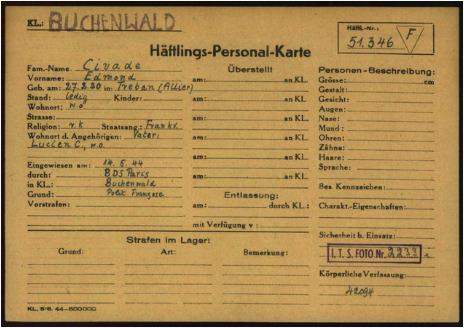 KL.: BUCHENWALD
Häftl.-Nr.:
51.346
F
Häftlings-Personal-Karte
Fam.-Name: Civade
Vorname: Edmond
Geb. am: 27.2.20 in: Treban (Allier)
Stand: ledig Kinder:
Wohnort: w.o.
Strasse:
Religion: r.k Staatsang.: Frankr.
Wohnort d. Angehörigen: Vater:
Lucien C., w.o.
Eingewiesen am: 14.5.44
durch: BDS Paris
in KL.: Buchenwald
Grund: Polit. Franzose
Vorstrafen:
Überstellt
am: an KL.
am: an KL.
am: an KL.
am: an KL.
am: an KL.
am: an KL.
Entlassung:
am: durch KL.:
mit Verfügung v.:
Personen-Beschreibung:
Grösse: cm
Gestalt:
Gesicht:
Augen:
Nase:
Mund:
Ohren:
Zähne:
Haare:
Sprache:
Bes. Kennzeichen:
Charakt.-Eigenschaften:
Sicherheit b. Einsatz:
I.T.S. FOTO Nr. 2233
Körperliche Verfassung:
42094
Strafen im Lager:
Grund: Art: Bemerkung:
KL, 5-6. 44-500000